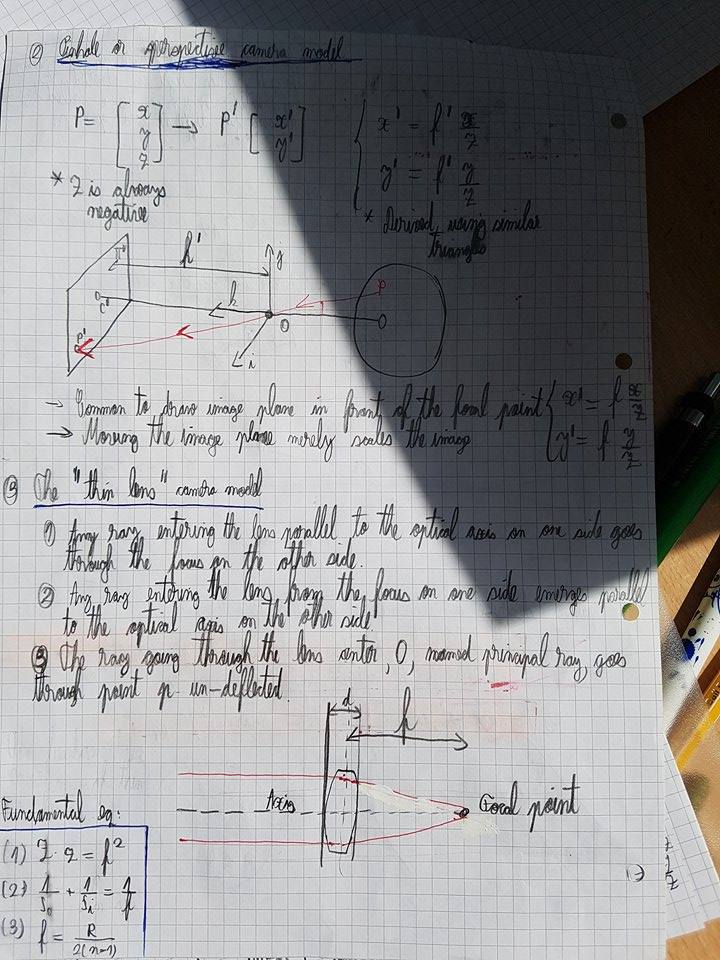 ② Pinhole or perspective camera model
P = [x y z] → P' [x' y']
{ x' = f' x/z
y' = f' y/z
* Z is always
negative
* Derived using similar
triangles
Π'
f'
j
k
C'
P
O
P'
i
→ Common to draw image plane in front of the focal point { x' = f x/z
→ Moving the image plane merely scales the image y' = f y/z
③ The "thin lens" camera model
① Any ray entering the lens parallel to the optical axis on one side goes
through the focus on the other side.
② Any ray entering the lens from the focus on one side emerges parallel
to the optical axis on the other side
③ The ray going through the lens center, O, named principal ray, goes
through point p un-deflected.
d
f
Axis
Focal point
Fundamental eq:
(1) Z · z = f²
(2) 1/S₀ + 1/Sᵢ = 1/f
(3) f = R/2(n-1)